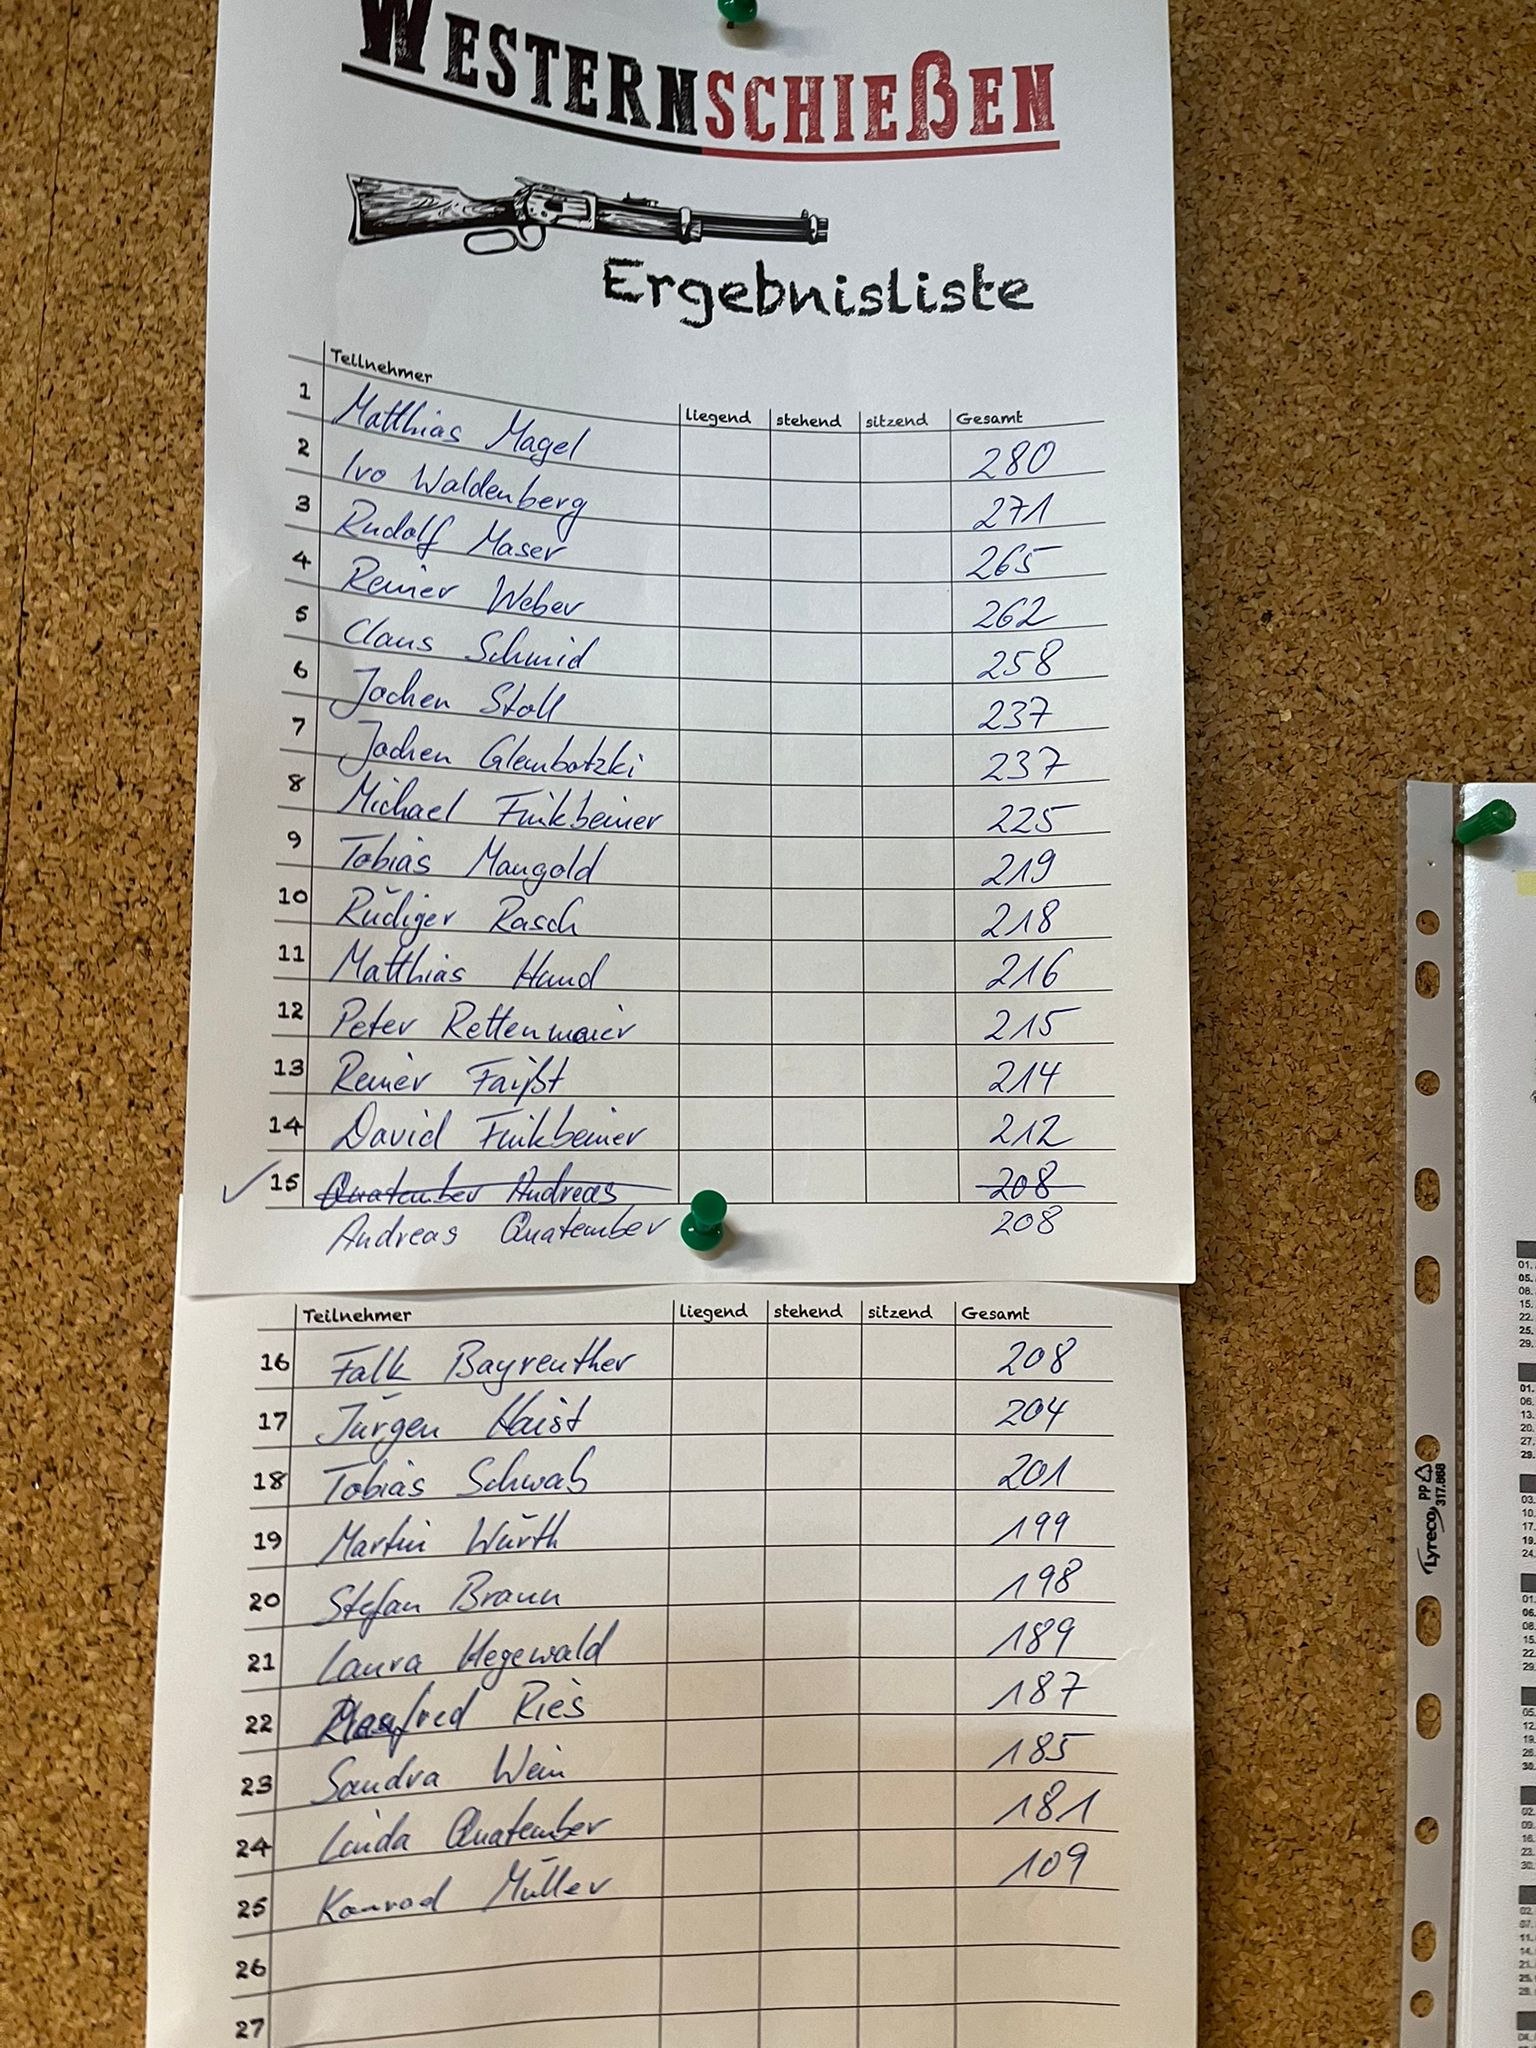 WESTERNSCHIEßEN
Ergebnisliste
Teilnehmer liegend stehend sitzend Gesamt
1 Matthias Magel 280
2 Ivo Waldenberg 271
3 Rudolf Maser 265
4 Reiner Weber 262
5 Claus Schmid 258
6 Jochen Stoll 237
7 Jochen Glembotzki 237
8 Michael Finkbeiner 225
9 Tobias Mangold 219
10 Rüdiger Rasch 218
11 Matthias Hand 216
12 Peter Rettenmaier 215
13 Reiner Faißt 214
14 David Finkbeiner 212
15 Quatember Andreas 208
Andreas Quatember 208
Teilnehmer liegend stehend sitzend Gesamt
16 Falk Bayreuther 208
17 Jürgen Haist 204
18 Tobias Schwab 201
19 Martin Würth 199
20 Stefan Braun 198
21 Laura Hegewald 189
22 Manfred Ries 187
23 Sandra Wein 185
24 Linda Quatember 181
25 Konrad Müller 109
26
27
Lyreco PP 317.868